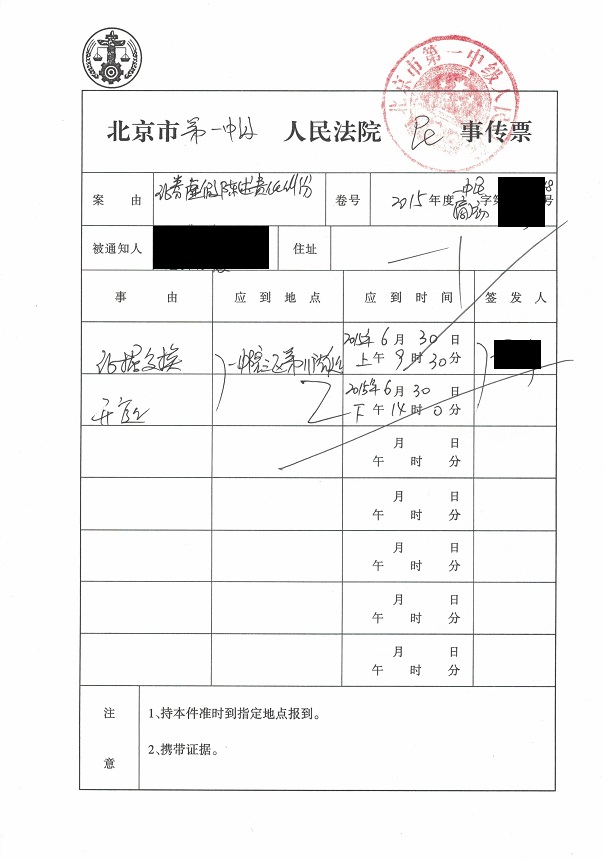 北京市第一中级人民
北京市 第一中级 人民法院 民 事传票
案 由
证券虚假陈述责任纠纷
卷号
2015年度一中民商初字第 号
被通知人
住址
事 由 应到地点 应到时间 签发人
证据交换 一中院 第 法庭 2015年6月30日
上午9时30分
开庭 2015年6月30日
下午14时0分
月 日
午 时 分
月 日
午 时 分
月 日
午 时 分
月 日
午 时 分
月 日
午 时 分
注 1、持本件准时到指定地点报到。
意 2、携带证据。